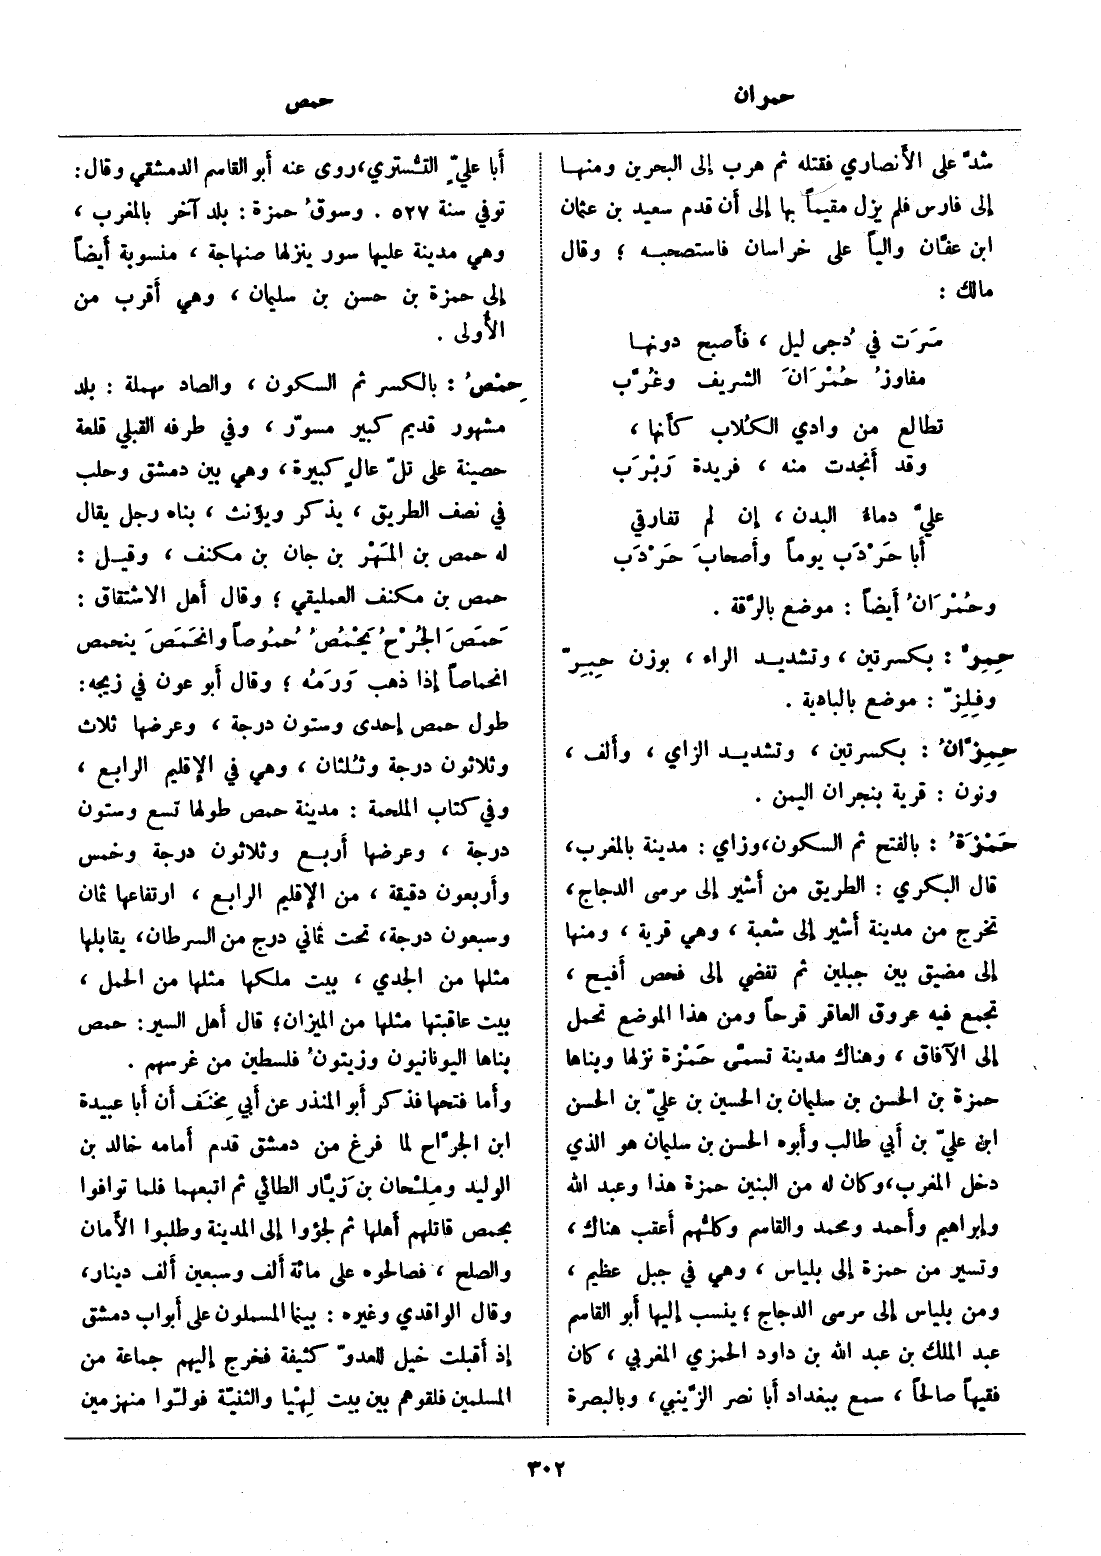 حمران
حمص
شدّ على الأنصاري فقتله ثم هرب إلى البحرين ومنها
إلى فارس فلم يزل مقيماً بها إلى أن قدم سعيد بن عثمان
ابن عفّان والياً على خراسان فاستصحبه ؛ وقال
مالك :
سَرَت في دُجى ليل ، فأصبح دونها
مفاوزُ حُمْرَانَ الشريف وغُرَّب
تطالع من وادي الكُلاب كأنها ،
وقد أنجدت منه ، فريدة رَبْرَب
عليّ دماءُ البدن ، إن لم تفارقي
أبا حَرْدَب يوماً وأصحابَ حَرْدَب
وحُمْرَانُ أيضاً : موضع بالرَّقة .
حِمِرّ : بكسرتين ، وتشديد الراء ، بوزن حِبِرّ
وفِلِزّ : موضع بالبادية .
حِمِزَّانُ : بكسرتين ، وتشديد الزاي ، وألف ،
ونون : قرية بنجران اليمن .
حَمْزَةُ : بالفتح ثم السكون، وزاي : مدينة بالمغرب،
قال البكري : الطريق من أشير إلى مرسى الدجاج،
تخرج من مدينة أشير إلى شعبة ، وهي قرية ، ومنها
إلى مضيق بين جبلين ثم تفضي إلى فحص أفيح ،
تجمع فيه عروق العاقر قرحاً ومن هذا الموضع تحمل
إلى الآفاق ، وهناك مدينة تسمّى حَمْزة نزلها وبناها
حمزة بن الحسن بن سليمان بن الحسين بن عليّ بن الحسن
ابن عليّ بن أبي طالب وأبوه الحسن بن سليمان هو الذي
دخل المغرب، وكان له من البنين حمزة هذا وعبد الله
وإبراهيم وأحمد ومحمد والقاسم وكلُّهم أعقب هناك ،
وتسير من حمزة إلى بلياس ، وهي في جبل عظيم ،
ومن بلياس إلى مرسى الدجاج ؛ ينسب إليها أبو القاسم
عبد الملك بن عبد الله بن داود الحمزي المغربي ، كان
فقيهاً صالحاً ، سمع ببغداد أبا نصر الزَّينبي ، وبالبصرة
أبا عليّ التُّستري، روى عنه أبو القاسم الدمشقي وقال :
توفي سنة ٥٢٧ . وسوقُ حمزة : بلد آخر بالمغرب ،
وهي مدينة عليها سور ينزلها صنهاجة ، منسوبة أيضاً
إلى حمزة بن حسن بن سليمان ، وهي أقرب من
الأُولى .
حِمْصُ : بالكسر ثم السكون ، والصاد مهملة : بلد
مشهور قديم كبير مسوّر ، وفي طرفه القبلي قلعة
حصينة على تلّ عالٍ كبيرة ، وهي بين دمشق وحلب
في نصف الطريق ، يذكر ويؤنث ، بناه رجل يقال
له حمص بن المَهْر بن جان بن مكنف ، وقيل :
حمص بن مكنف العمليقي ؛ وقال أهل الاشتقاق :
حَمَصَ الجُرْحُ يَحْمُصُ حُمُوصاً وانحَمَصَ ينحمص
انحماصاً إذا ذهب وَرَمُه ؛ وقال أبو عون في زيجه:
طول حمص إحدى وستون درجة ، وعرضها ثلاث
وثلاثون درجة وثلثان ، وهي في الإقليم الرابع ،
وفي كتاب الملحمة : مدينة حمص طولها تسع وستون
درجة ، وعرضها أربع وثلاثون درجة وخمس
وأربعون دقيقة ، من الإقليم الرابع ، ارتفاعها ثمان
وسبعون درجة، تحت ثماني درج من السرطان، يقابلها
مثلها من الجدي ، بيت ملكها مثلها من الحمل ،
بيت عاقبتها مثلها من الميزان؛ قال أهل السير: حمص
بناها اليونانيون وزيتونُ فلسطين من غرسهم .
وأما فتحها فذكر أبو المنذر عن أبي مِخنَف أن أبا عبيدة
ابن الجرَّاح لما فرغ من دمشق قدم أمامه خالد بن
الوليد ومِلْحان بن زَيّار الطائي ثم اتبعهما فلما توافوا
بحمص قاتلهم أهلها ثم لجؤوا إلى المدينة وطلبوا الأمان
والصلح ، فصالحوه على مائة ألف وسبعين ألف دينار،
وقال الواقدي وغيره : بينما المسلمون على أبواب دمشق
إذ أقبلت خيل للعدوّ كثيفة فخرج إليهم جماعة من
المسلمين فلقوهم بين بيت لِهْيا والثنيّة فولّوا منهزمين
٣٠٢